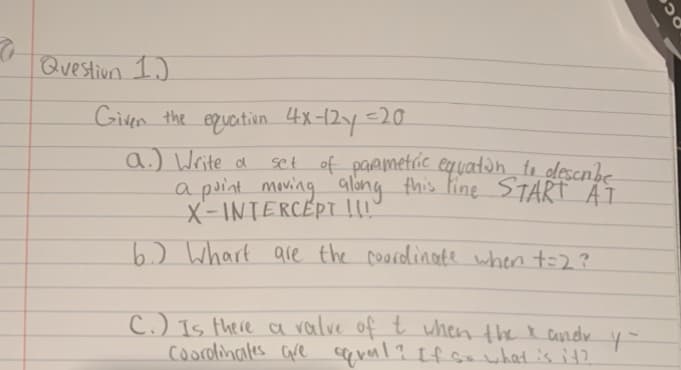 Question 1.)
Given the equation 4x-12y=20
a.) Write a set of parametric equation to describe
a point moving along this line START AT
X-INTERCEPT !!!
b.) Whart are the coordinate when t=2?
C.) Is there a value of t when the x and y-
coordinates are equal? If so what is it?